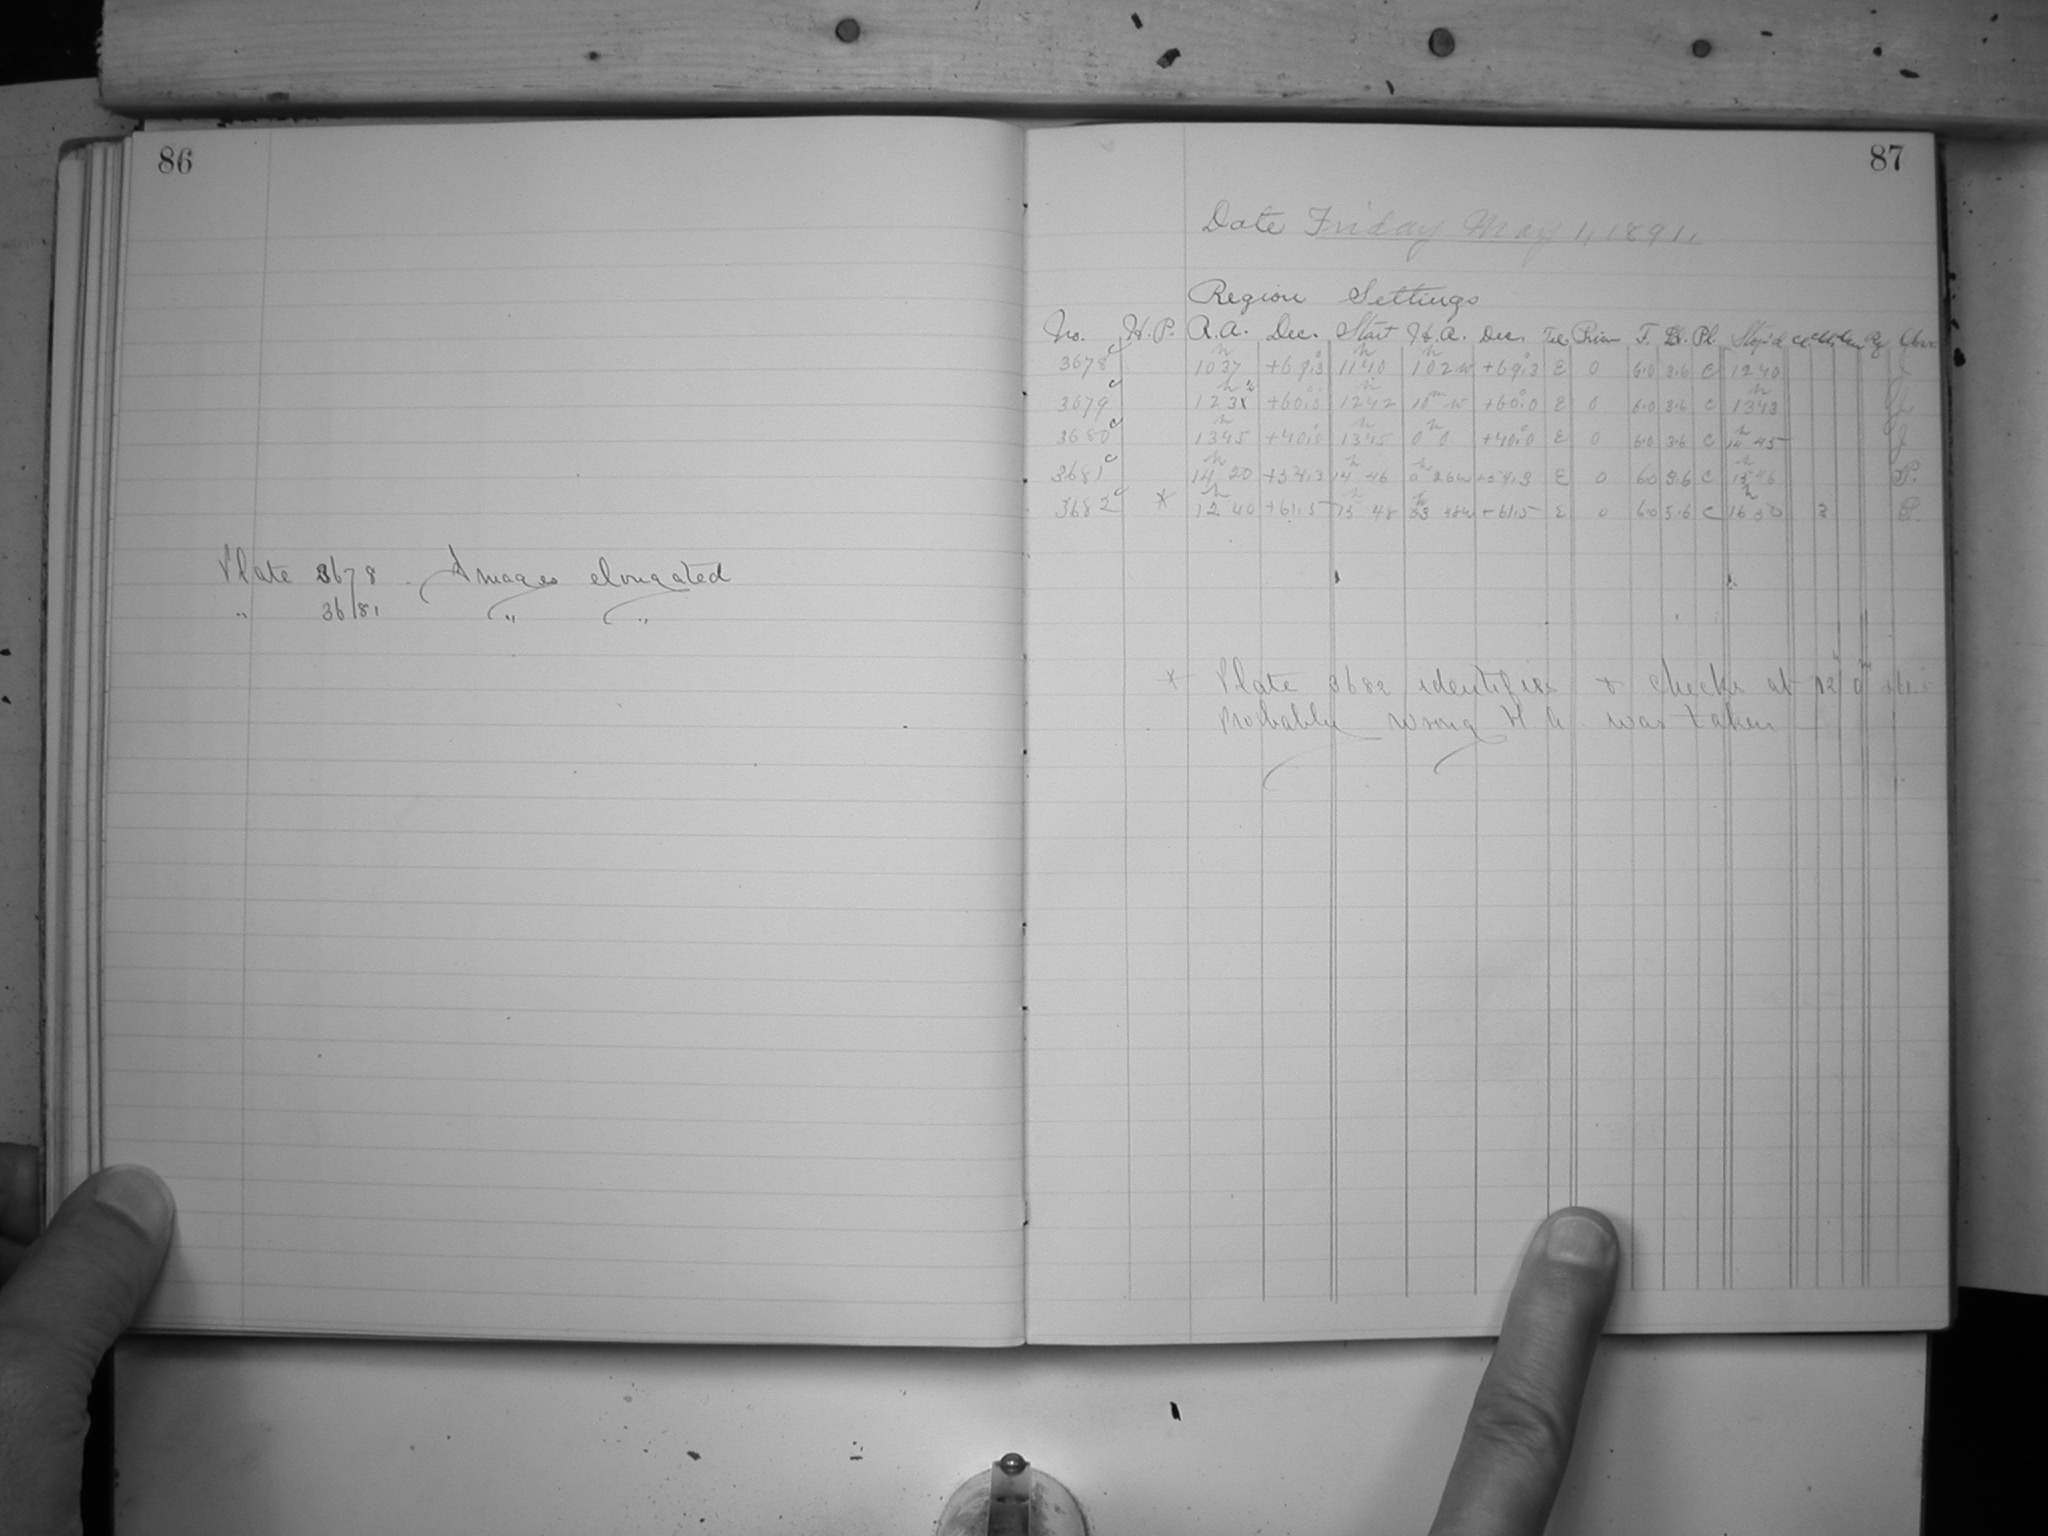 86
Plate 3678 Images elongated
" 3681 " "
87
Date Friday May 1, 1891.
Region Settings
No. H. P. R.A. Dec. Start H.A. Dec. Tel. Prism F. Pl. Stop'd Obser.
3678 c 10 37 +69.3 11 40 1 02 w +69.3 E 0 6.0 3.6 C 12 40
3679 c +60.0 12 42 10 m w +60.0 E 0 6.0 3.6 C 13 43
3680 c 13 45 +40.0 13 45 0 h 0 +40.0 E 0 6.0 3.6 C 14 45
3681 c 14 20 14 46 0 h 26 w E 0 6.0 3.6 C 15 46 P.
3682 c * 12 40 +61.5 15 48 +61.5 E 0 6.0 3.6 C 16 50 P.
* Plate 3682 identifies & checks at 12 h 0 m +61.5
Probably wrong H. A. was taken